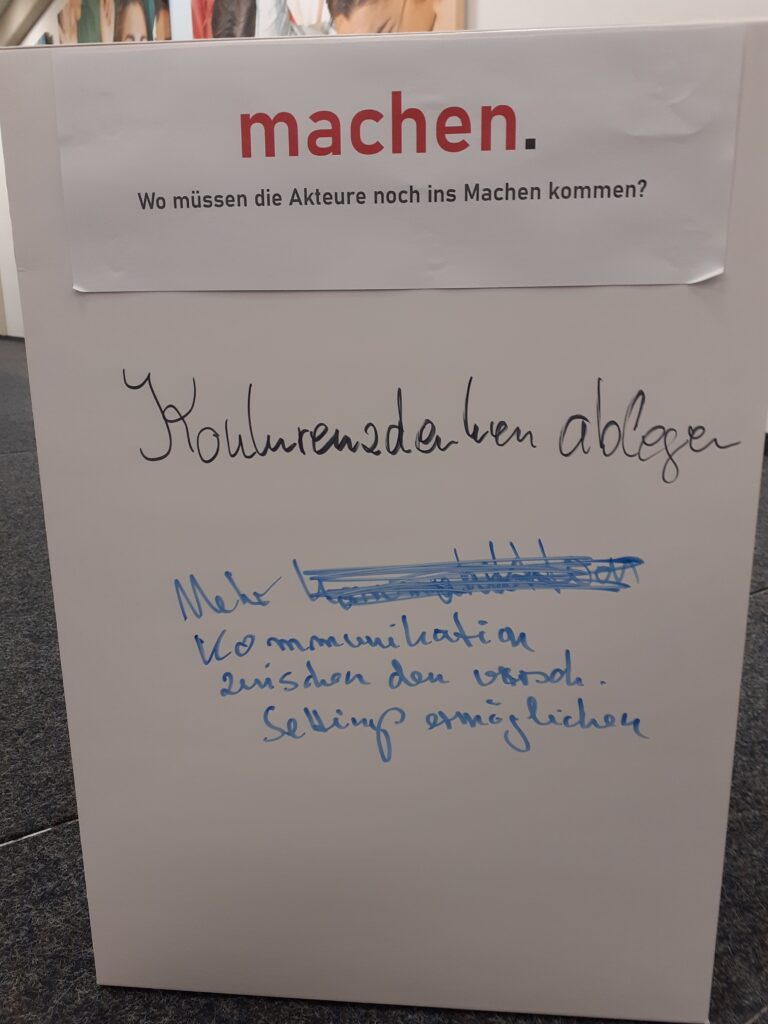 machen.
Wo müssen die Akteure noch ins Machen kommen?
Konkurenzdenken ablegen
Mehr
Kommunikation
zwischen den versch.
Settings ermöglichen